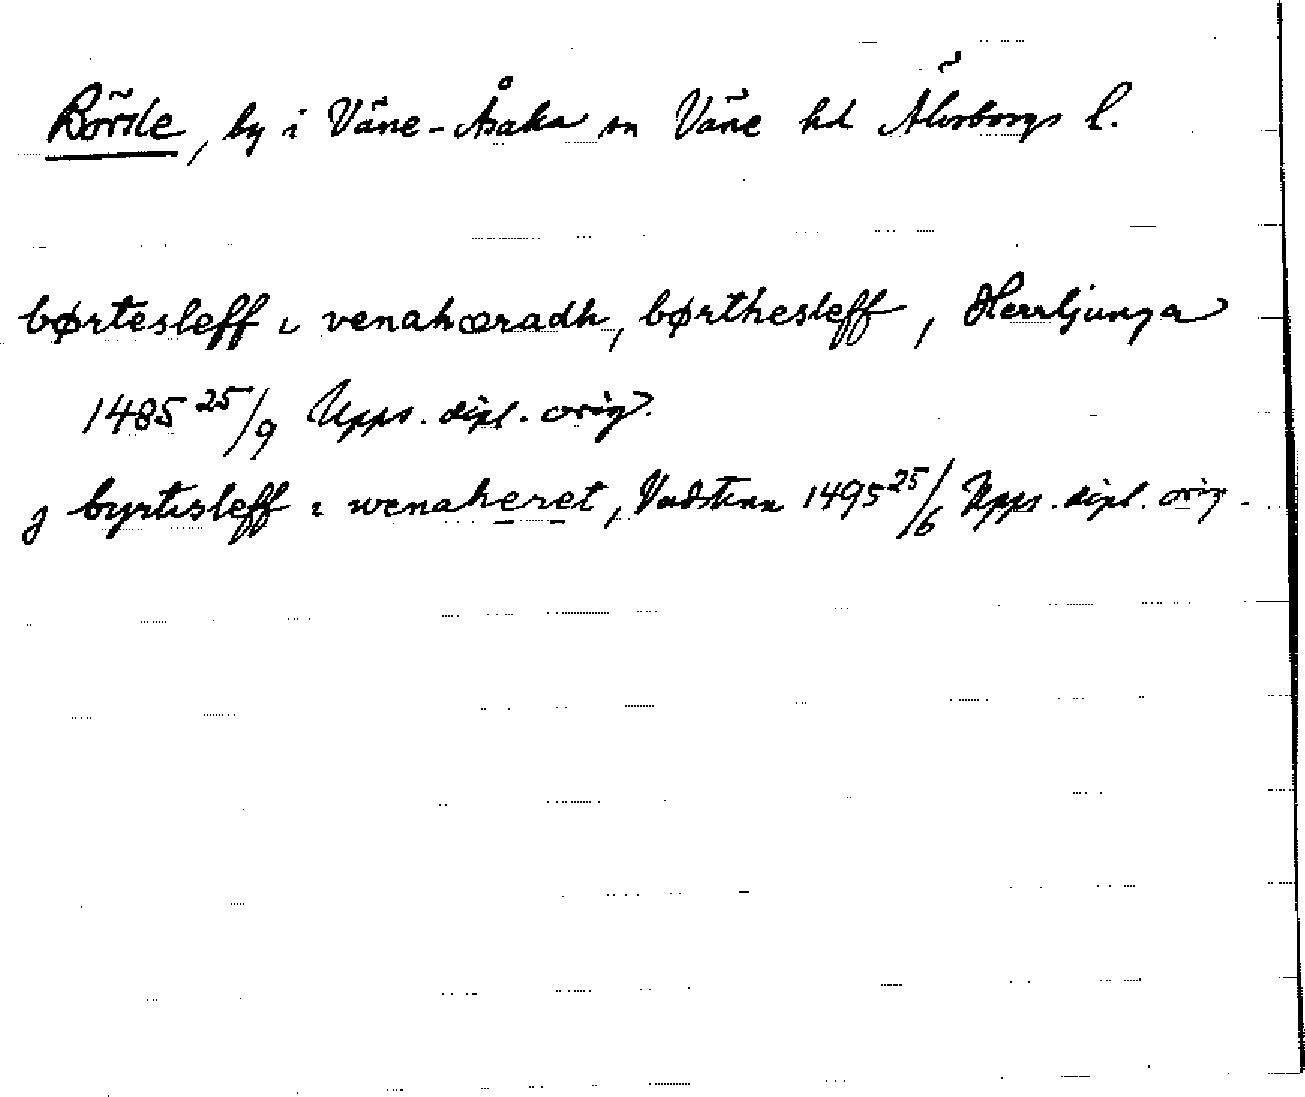 Börsle, by i Väne-Åsaka sn Väne hd Älvsborgs l.
børtesleff i venahæradh, børthesleff, Herrljunga
1485 25/9 Upps. dipl. orig.
j byrtisleff i wenaheret, Vadstena 1495 25/6 Upps. dipl. orig.